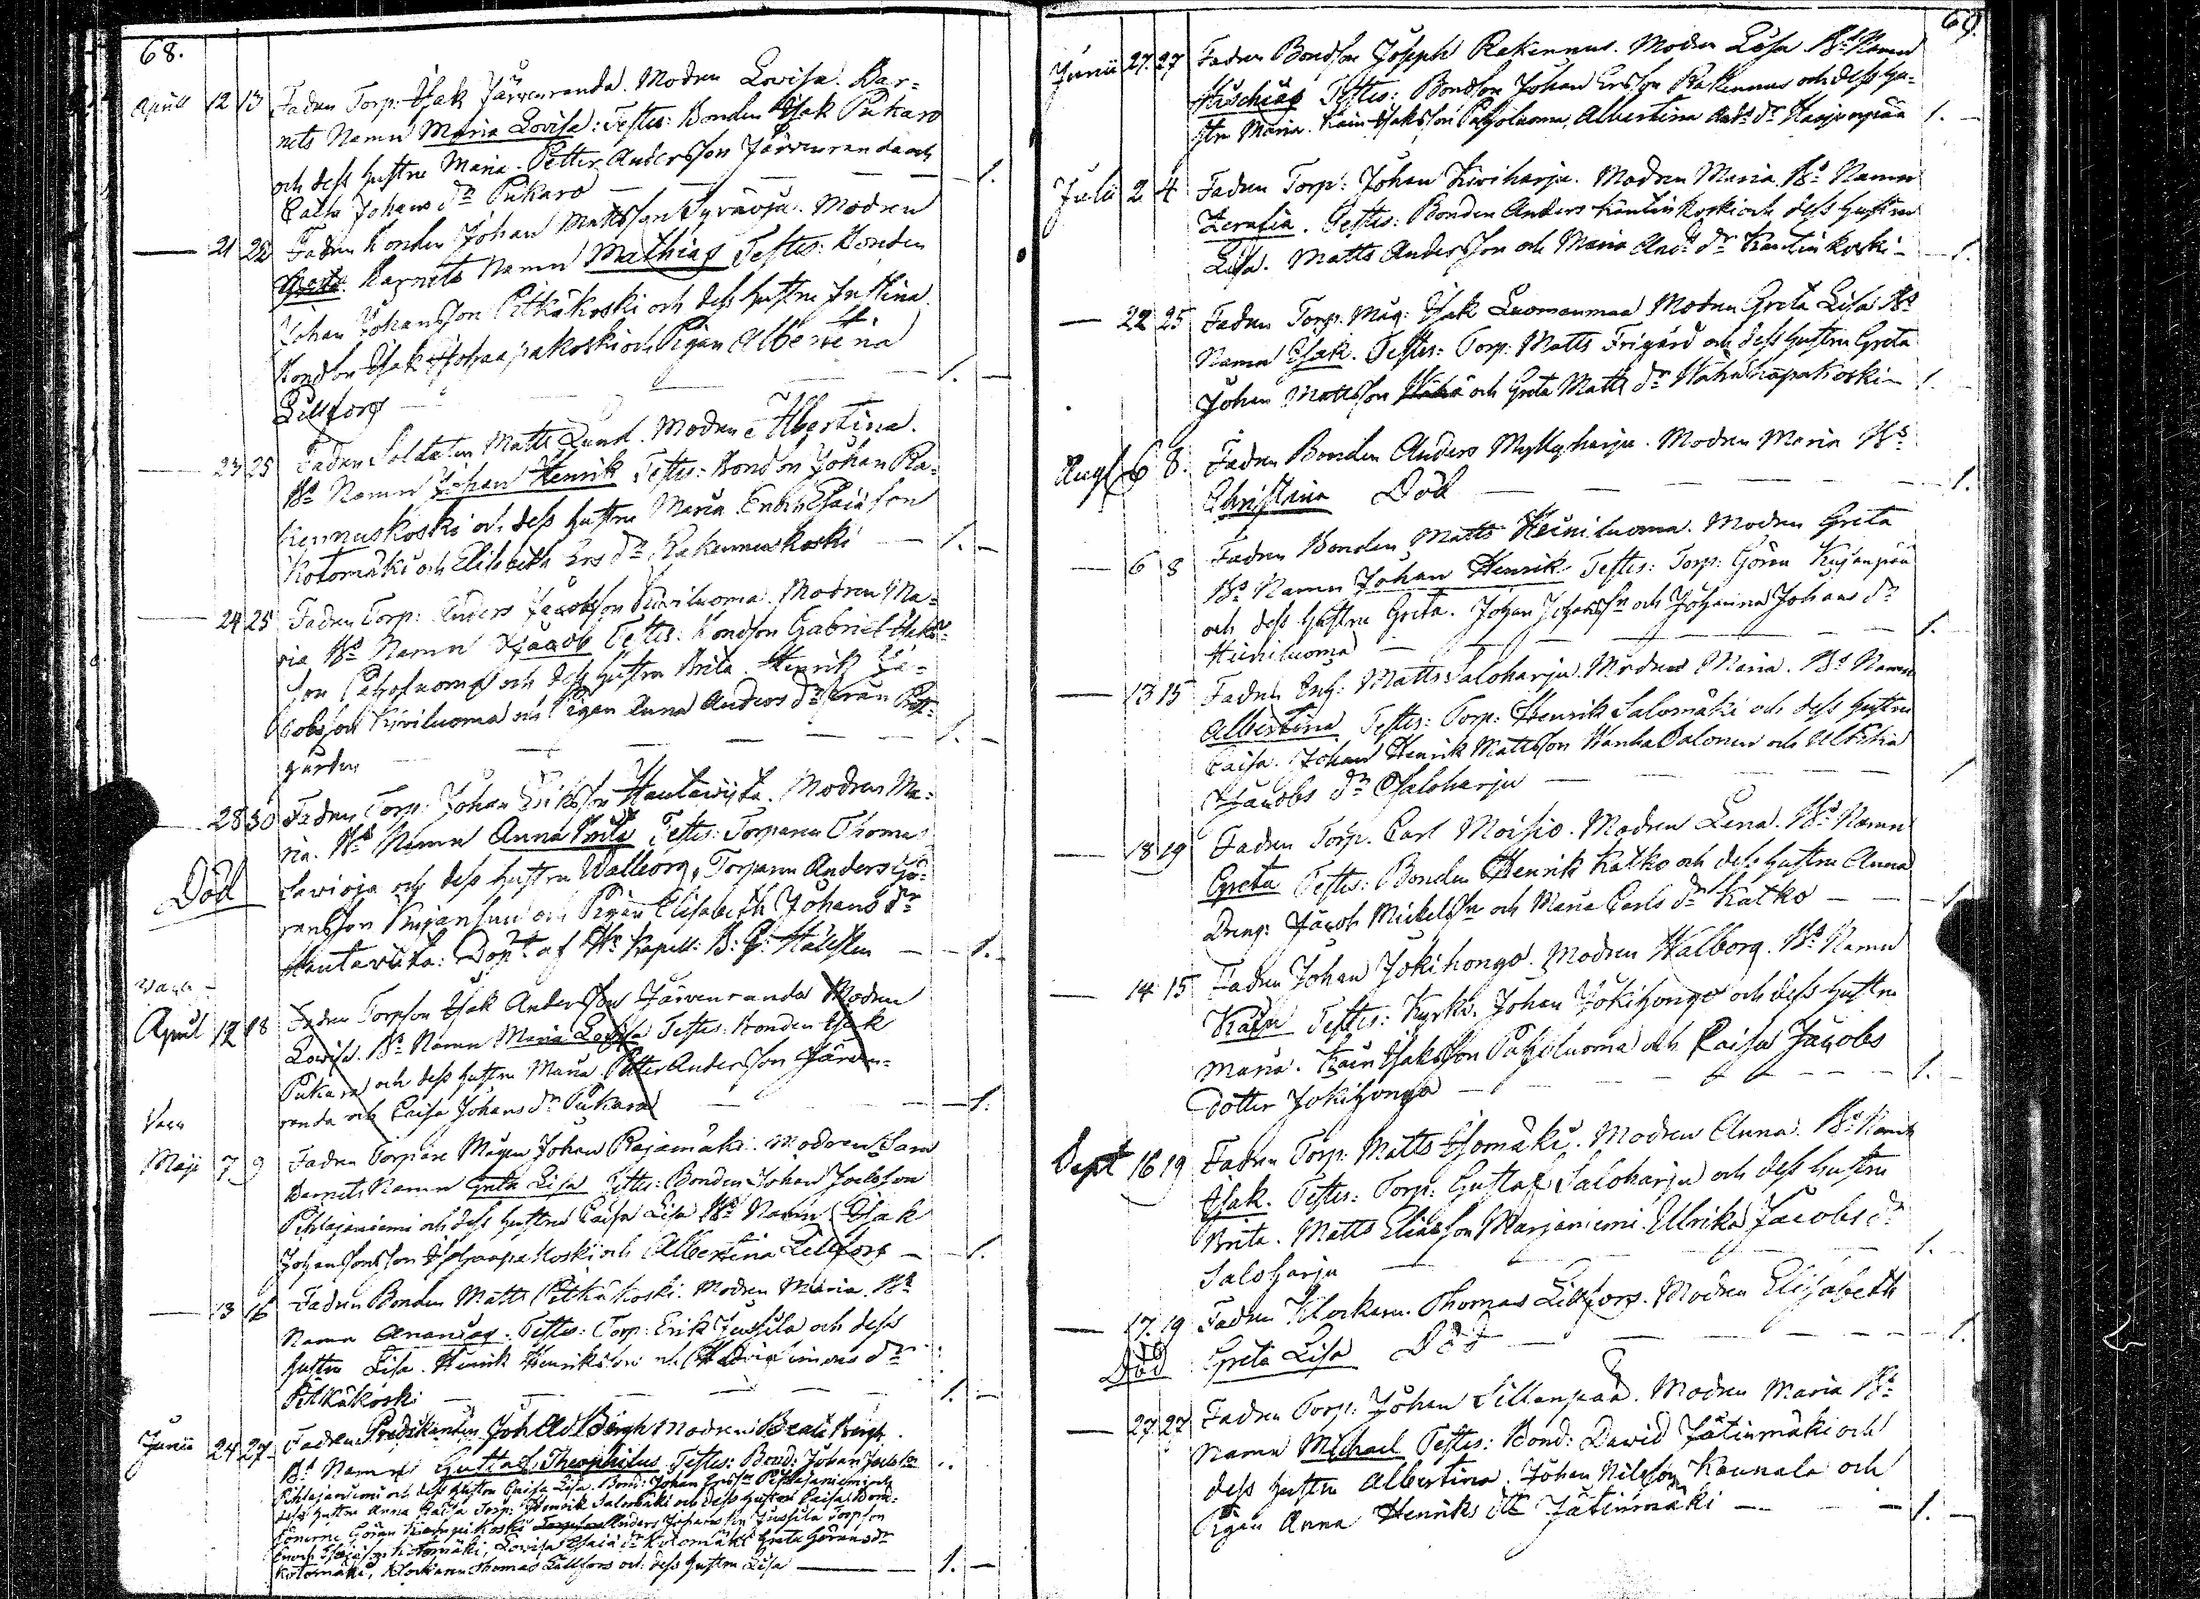 68.
April 12 13 Fadren Torp: Isak Järvenranda. Modren Lovisa. Bar-
nets Namn Maria Lovisa: Testes: Bonden Isak Pukaro
och dess hustru Maria. Petter Andersson Järvenranda och
Caisa Johans dr Pukaro — — — 1.
— 21 22 Fadren Bonden Johan Mattsson Syräoja. Modren
Greta. Barnets Namn Mathias Testes: Bonden
Johan Johansson Pitkäkoski och dess hustru Justina.
Bondson Isak Ishaapakoski och Pigan Albertina
Lillfors — — — 1. —
— 23 25 Fadren Soldaten Matts Lund. Modren Albertina.
Bs Namn Johan Henrik Testes: Bondson Johan Ra-
kennuskoski och dess hustru Maria. Enoch Esaiasson
Kotomäki och Elisbeth Ers dr Rakennuskoski — 1. —
— 24 25 Fadren Torp: Anders Jacobsson Kiviluoma. Modren Ma-
ria Bs Namn Jacob Testes: Bondson Gabriel Isaks-
son Paholuoma och dess hustru Brita. Henrik Ja-
cobsson Kiviluoma och Pigan Anna Anders dr från Prest-
gården — — — 1. —
— 28 30 Fadren Torp: Johan Eriksson Hautaviita. Modren Ma-
ria. Bs Namn Anna Brita Testes: Torparen Thomas
Död Savioja och dess hustru Walborg, Torparen Anders Gö-
ransson Kujansuu och Pigan Elisabeth Johans dr
Hautaviita: Döpt af Hr Kapell: B: G: Hällsten — 1. —
April 12 18 Fadren Torpson Isak Andersson Järvenranda Modren
Lovisa. Bs Namn Maria Lovisa Testes: Bonden Isak
Pukara och dess hustru Maria Petter Andersson Järven-
randa och Caisa Johans dr Pukara — — 1.
Maji 7 9 Fadren Torpare Mågen Johan Rajamäki. Modren Sara
Barnets Namn Greta Lisa Testes: Bonden Johan Joelsson
Pihlajaniemi och dess hustru Caisa Lisa Bs Namn Isak
Johansson Ishaapakoski och Albertina Lillfors — 1.
— 13 16 Fadren Bonden Matts Pitkäkoski. Modren Maria. Bs
Namn Ananias. Testes: Torp: Erik Jussila och dess
hustru Lisa. Henrik Henriksson och dr
Pitkäkoski — — — 1. —
Junii 24 27 Fadren Predikanten Joh Ad Bergh Modren Beata Bergh.
Bs Namn Gustaf Theophilus Testes: Bond: Johan Joelsson
Pihlajaniemi och dess hustru Caisa Lisa. Bond: Johan Ersson Pihlajaniemi och
dess hustru Anna Caisa Torp: Henrik Salomäki och dess hustru Caisa Bond:
sönerne Göran Anders Johansson Jussila Torpson
Enoch Esaiasson Kotomäki, Lovisa Esaiæ dr Kotomäki Greta Görans dr
Kotomäki, Klockaren Thomas Lillfors och dess hustru Lisa — 1. —
69.
Junii 27 27 Fadren Bondson Joseph Rakennus. Modren Lisa Bs Namn
Hischias Testes: Bondson Johan Ersson Rakennus och dess hu-
stru Maria. Kain Isaksson Pahjoluoma, Albertina And: dr Harjunpää 1. —
Julii 2 4 Fadren Torp: Johan Kiviharju. Modren Maria Bs Namn
Zerafia. Testes: Bonden Anders Hautinkoski och dess hustru
Lisa. Matts Andersson och Maria And: dr Hautinkoski — 1.
— 22 25 Fadren Torp. Måg: Isak Luomanmaa Modren Greta Lisa Bs
Namn Isak. Testes: Torp: Matts Frigård och dess hustru Greta
Johan Mattsson och Greta Matts dr Wähähaapakoski — 1.
Aug 6 8 Fadren Bonden Anders Myllyharju. Modren Maria Bs
Christina Död — — — 1.
— 6 8 Fadren Bonden Matts Heiniluoma. Modren Greta
Bs Namn Johan Henrik Testes: Torp: Göran Kujanpää
och dess hustru Greta. Johan Johanssn och Johanna Johans dr
Heiniluoma — — — 1.
— 13 15 Fadren Inh: Matts Saloharju. Modren Maria. Bs Namn
Albertina Testes: Torp: Henrik Salomäki och dess hustru
Caisa. Johan Henrik Mattsson Wanha Salonen och Ulrika
Jacobs dr Saloharju — — 1
— 18 19 Fadren Torp. Carl Moisio. Modren Lena. Bs Namn
Greta Testes: Bonden Henrik Katko och dess hustru Anna
Dreng: Jacob Mickelssn och Maria Carls dr Katko — 1
— 14 15 Fadren Johan Jokihonga. Modren Walborg. Bs Namn
Kain Testes: Kyrkv. Johan Jokihonga och dess hustru
Maria. Kain Isaksson Pahjoluoma och Caisa Jacobs
dotter Jokihonga — — — 1.
Sept 16 19 Fadren Torp: Matts Isomäki. Modren Anna. Bs Namn
Isak. Testes: Torp: Gustaf Saloharju och dess hustru
Brita. Matts Eliasson Marjaniemi Ulrika Jacobs dr
Saloharju — — — 1.
— 17 19 Fadren Klockaren Thomas Lillfors. Modren Elisabeth
Död Greta Lisa Död — — — 1.
— 27 27 Fadren Torp: Johan Sillanpää. Modren Maria Bs
Namn Michael Testes: Bond: David Jätinmäki och
dess hustru Albertina. Johan Nilsson Kaunala och
Pigan Anna Henriks dr Jätinmäki — — 1. —